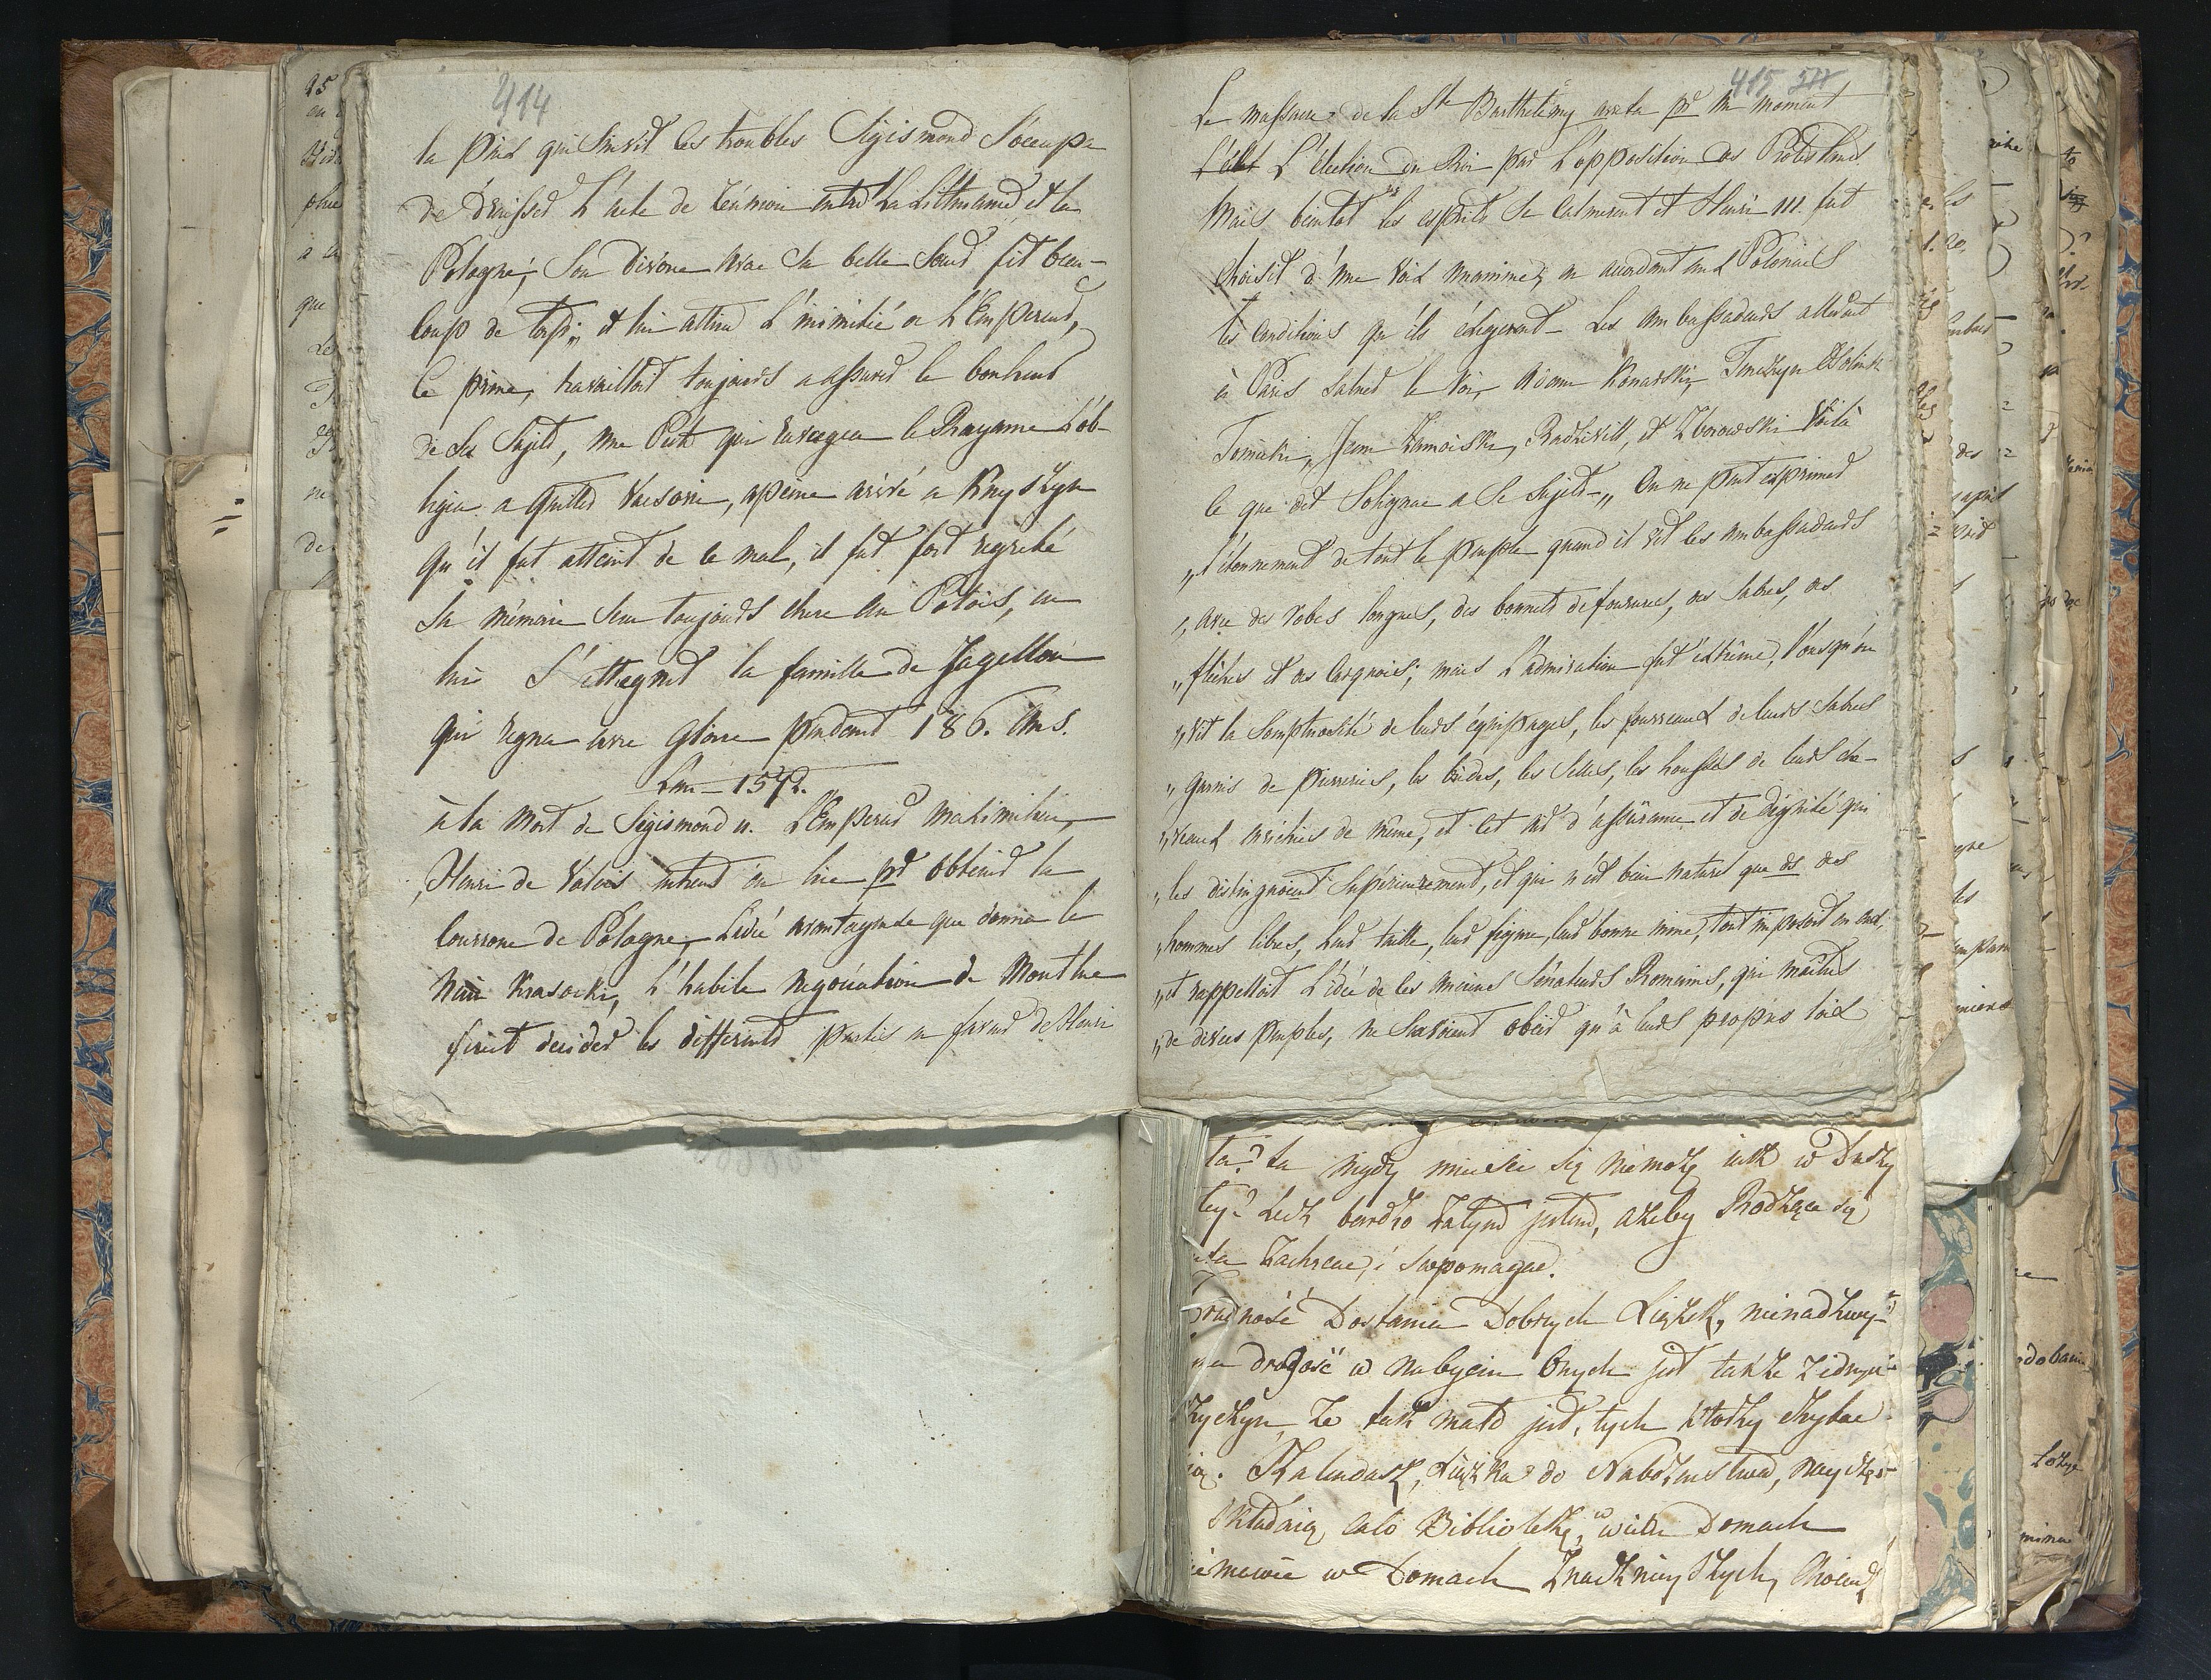 414
la paix qui suivit les troubles Sigismond s'occupa
de dresser l'acte de réunion entre la Lithuanie et la
Pologne; Son divorce avec sa belle Soeur fit beau-
coup de tort, et lui attira L'inimitié de L'Empereur,
Ce prince, travailloit toujours a assurer le bonheur
de Ses Sujets, une Peste qui ravagea le Royaume L'ob-
ligea a quitter Varsovie, apeine arivé a Knyszyn
qu'il fut atteint de ce mal, il fut fort regreté
Sa mémoire Sera toujours chere au Polois, en
lui S'ettegnit la famille de Jagellon
qui regna avec Gloire pendant 186. Ans.
L'an – 1572.
à la Mort de Sigismond II. L'Empereur Maximilien,
Henri de Valois entrent en lice pr obtenir la
Couronne de Pologne, L'idée avantageuse que donna le
Nain Krasocki, L'habile negociation de Montluc
firent decider les differents partis en faveur de Henri
415 511
Le massacre de la Ste Barthelémy areta pr un moment
L'élect L'élection du Roi par L'opposition des Protestants
Mais bientot les esprits se calmerent et Henri III. fut
choisit d'une voix unanime; en accordant aux Polonais
les conditions qu'ils éxigerent – Les ambassadeurs allerent
à Paris saluer le Roi, Adam Konarski, Tenczyn
Tomicki, Jean Zamoiski, Radzivill, et Zborowski Voilà
ce que dit Solignac a ce Sujet – „ On ne peut exprimer
„ l'étonnement de tout le peuple quand il vit les ambassadeurs
„ avec des robes longues, des bonnets de fourures, des Sabres, des
„ flêches et des Carquois; mais L'admiration fut éxtrême, lorsqu'on
„ vit la Somptuosité de leurs équipages, les fourreaux de leurs Sabres
„ garnis de pierreries, les brides, les Selles, les housses de leurs che-
„ veaux enrichies de même, et cet air d'assurance et de dignité qui
„ les distinguoient Supérieurement, et qui n'est bien naturel que ds des
„ hommes libres, leur taille, leur figure, leur bonne mine, tout imposoit en eux,
„ et rappelloit L'idée de ces anciens Sénateurs Romains, qui maîtres
„ de divers peuples, ne Savoient obéir qu'à leurs propres loix
ta? ta nigdy mieścić się niemoże iak w Duszy
tey? Lecz bardzo Zatym jestem, ażeby Rodzące się
Zachęcać, i swpomagać.
Dostania Dobrych Xiążek, nienadzwy-
drogość w nabyciu Onych jest także
że tak mało jest, tych którzy czytać
Kalendarz, Xiążka do Nabożeństwa, nayczęs-
Składaią całą Bibliotekę, w wielu Domach
w Domach Znacznieyszych,